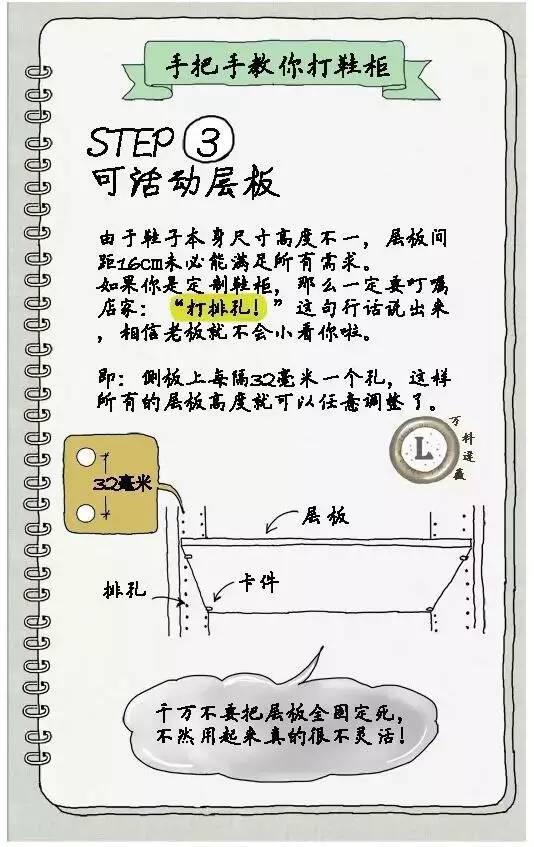 手把手教你打鞋柜
STEP ③
可活动层板
由于鞋子本身尺寸高度不一，层板间
距16cm未必能满足所有需求。
如果你是定制鞋柜，那么一定要叮嘱
店家：“打排孔！”这句行话说出来
，相信老板就不会小看你啦。
即：侧板上每隔32毫米一个孔，这样
所有的层板高度就可以任意调整了。
L
万科遂薇
32毫米
层板
排孔
卡件
千万不要把层板全固定死，
不然用起来真的很不灵活！